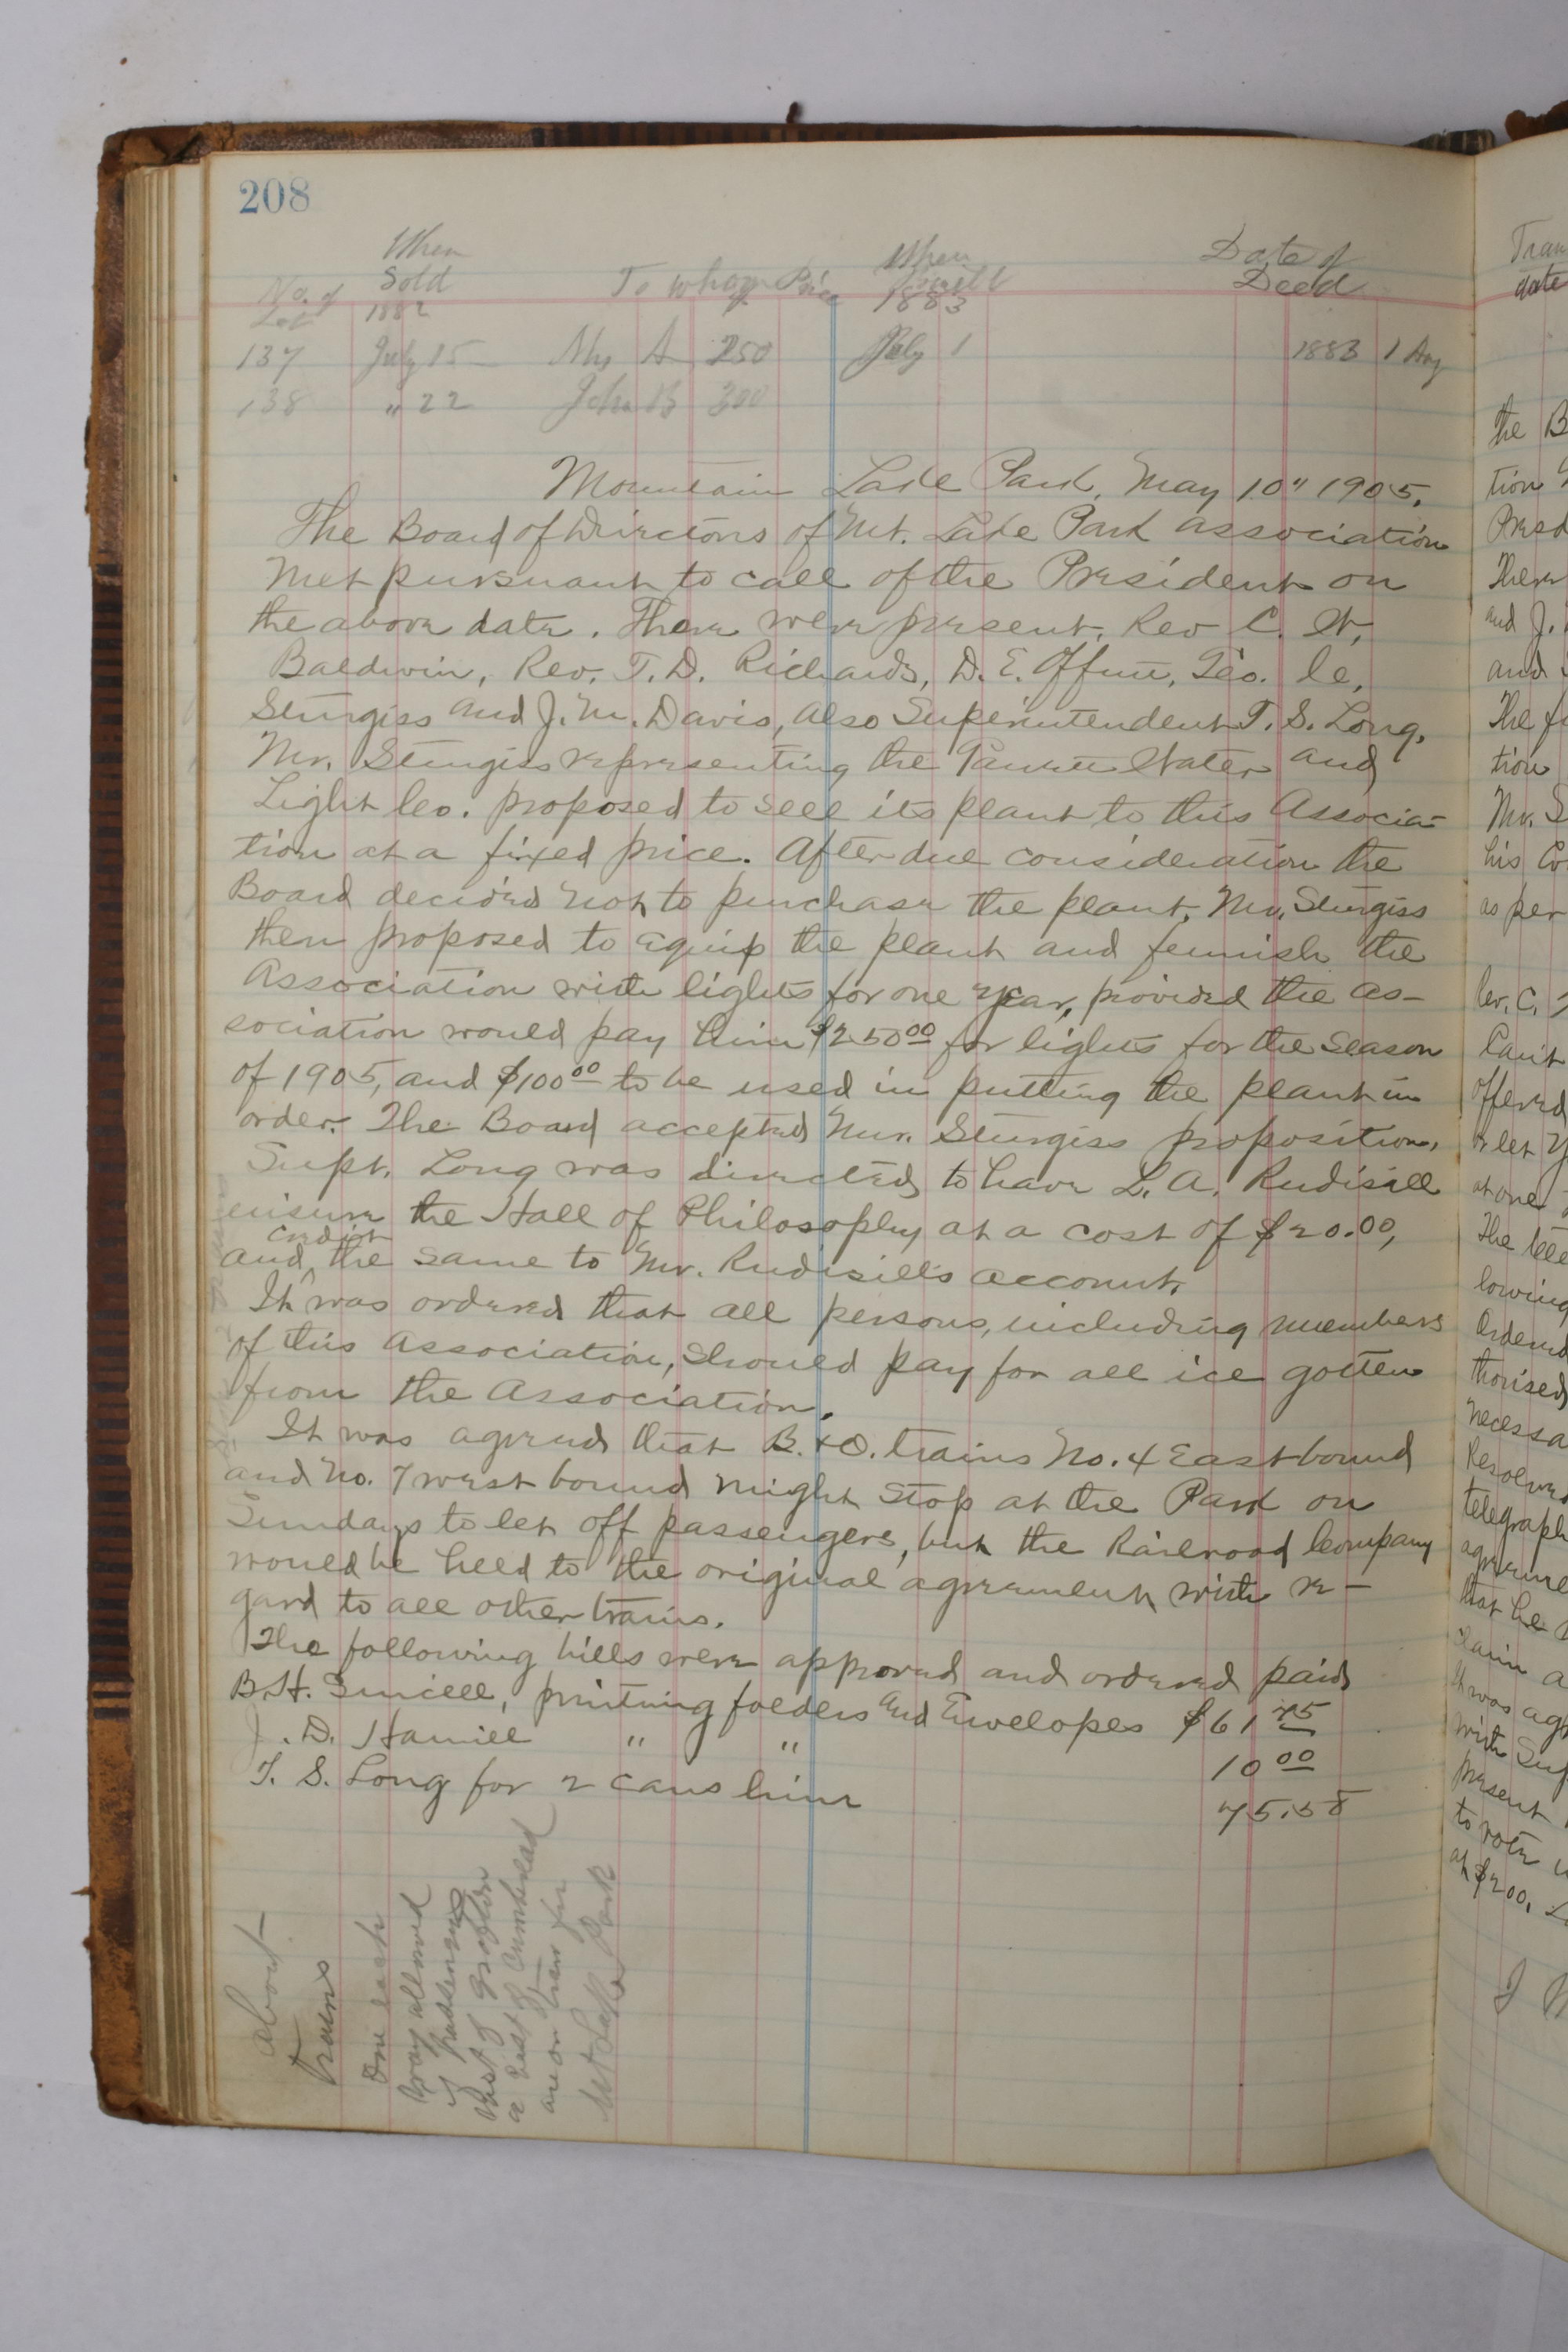 208
When
Sold
No. of
Lot
1882
To whom
Price
When
1883
Date of
Deed
137 July 15 Mr A 250 July 1 1883 1 Aug
138 " 22 John B 300
Mountain Lake Park, May 10" 1905.
The Board of Directors of Mt. Lake Park Association
met pursuant to call of the President on
the above date. There were present, Rev C. W.
Baldwin, Rev. T. D. Richards, D. E. Offutt, Geo. C.
Sturgiss and J. M. Davis, also Superintendent T. S. Long.
Mr. Sturgiss representing the Water and
Light Co. proposed to sell its plant to this Associa-
tion at a fixed price. After due consideration the
Board decided not to purchase the plant. Mr. Sturgiss
then proposed to equip the plant and furnish the
Association with lights for one year, provided the as-
sociation would pay him $250.00 for lights for the season
of 1905, and $100.00 to be used in putting the plant in
order. The Board accepted Mr. Sturgiss proposition.
Supt. Long was directed to have L. A. Rudisill
insure the Hall of Philosophy at a cost of $20.00,
and credit the same to Mr. Rudisill's account.
It was ordered that all persons, including members
of this Association, should pay for all ice gotten
from the Association.
It was agreed that B. & O. trains No. 4 East bound
and No. 7 west bound might stop at the Park on
Sundays to let off passengers, but the Railroad Company
would be held to the original agreement with re-
gard to all other trains.
The following bills were approved and ordered paid
B. H. Sincell, printing folders and Envelopes $61 75
J. D. Hamill " " 10 00
T. S. Long for 2 cans lime 75.58
About
trains
One each
way allowed
if passengers
West of Grafton
or East of Cumberland
are on train for
Mt Lake Park
Tran
date
the B
tion
Presd
There
and J.
and
The fi
tion
Mr. S
his Co
as per
Rev. C.
Can't
offered
at one
The
lowing
Ordered
thorised
necessa
Resolved
telegraph
agreeme
that he
claim a
It was agr
with Sup
present
to vote
at $200.